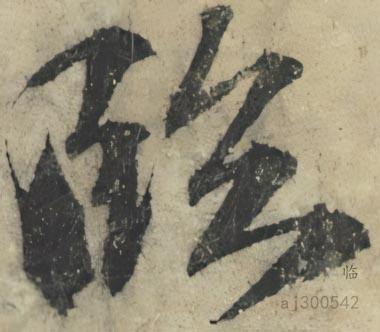 臨
临
aj300542